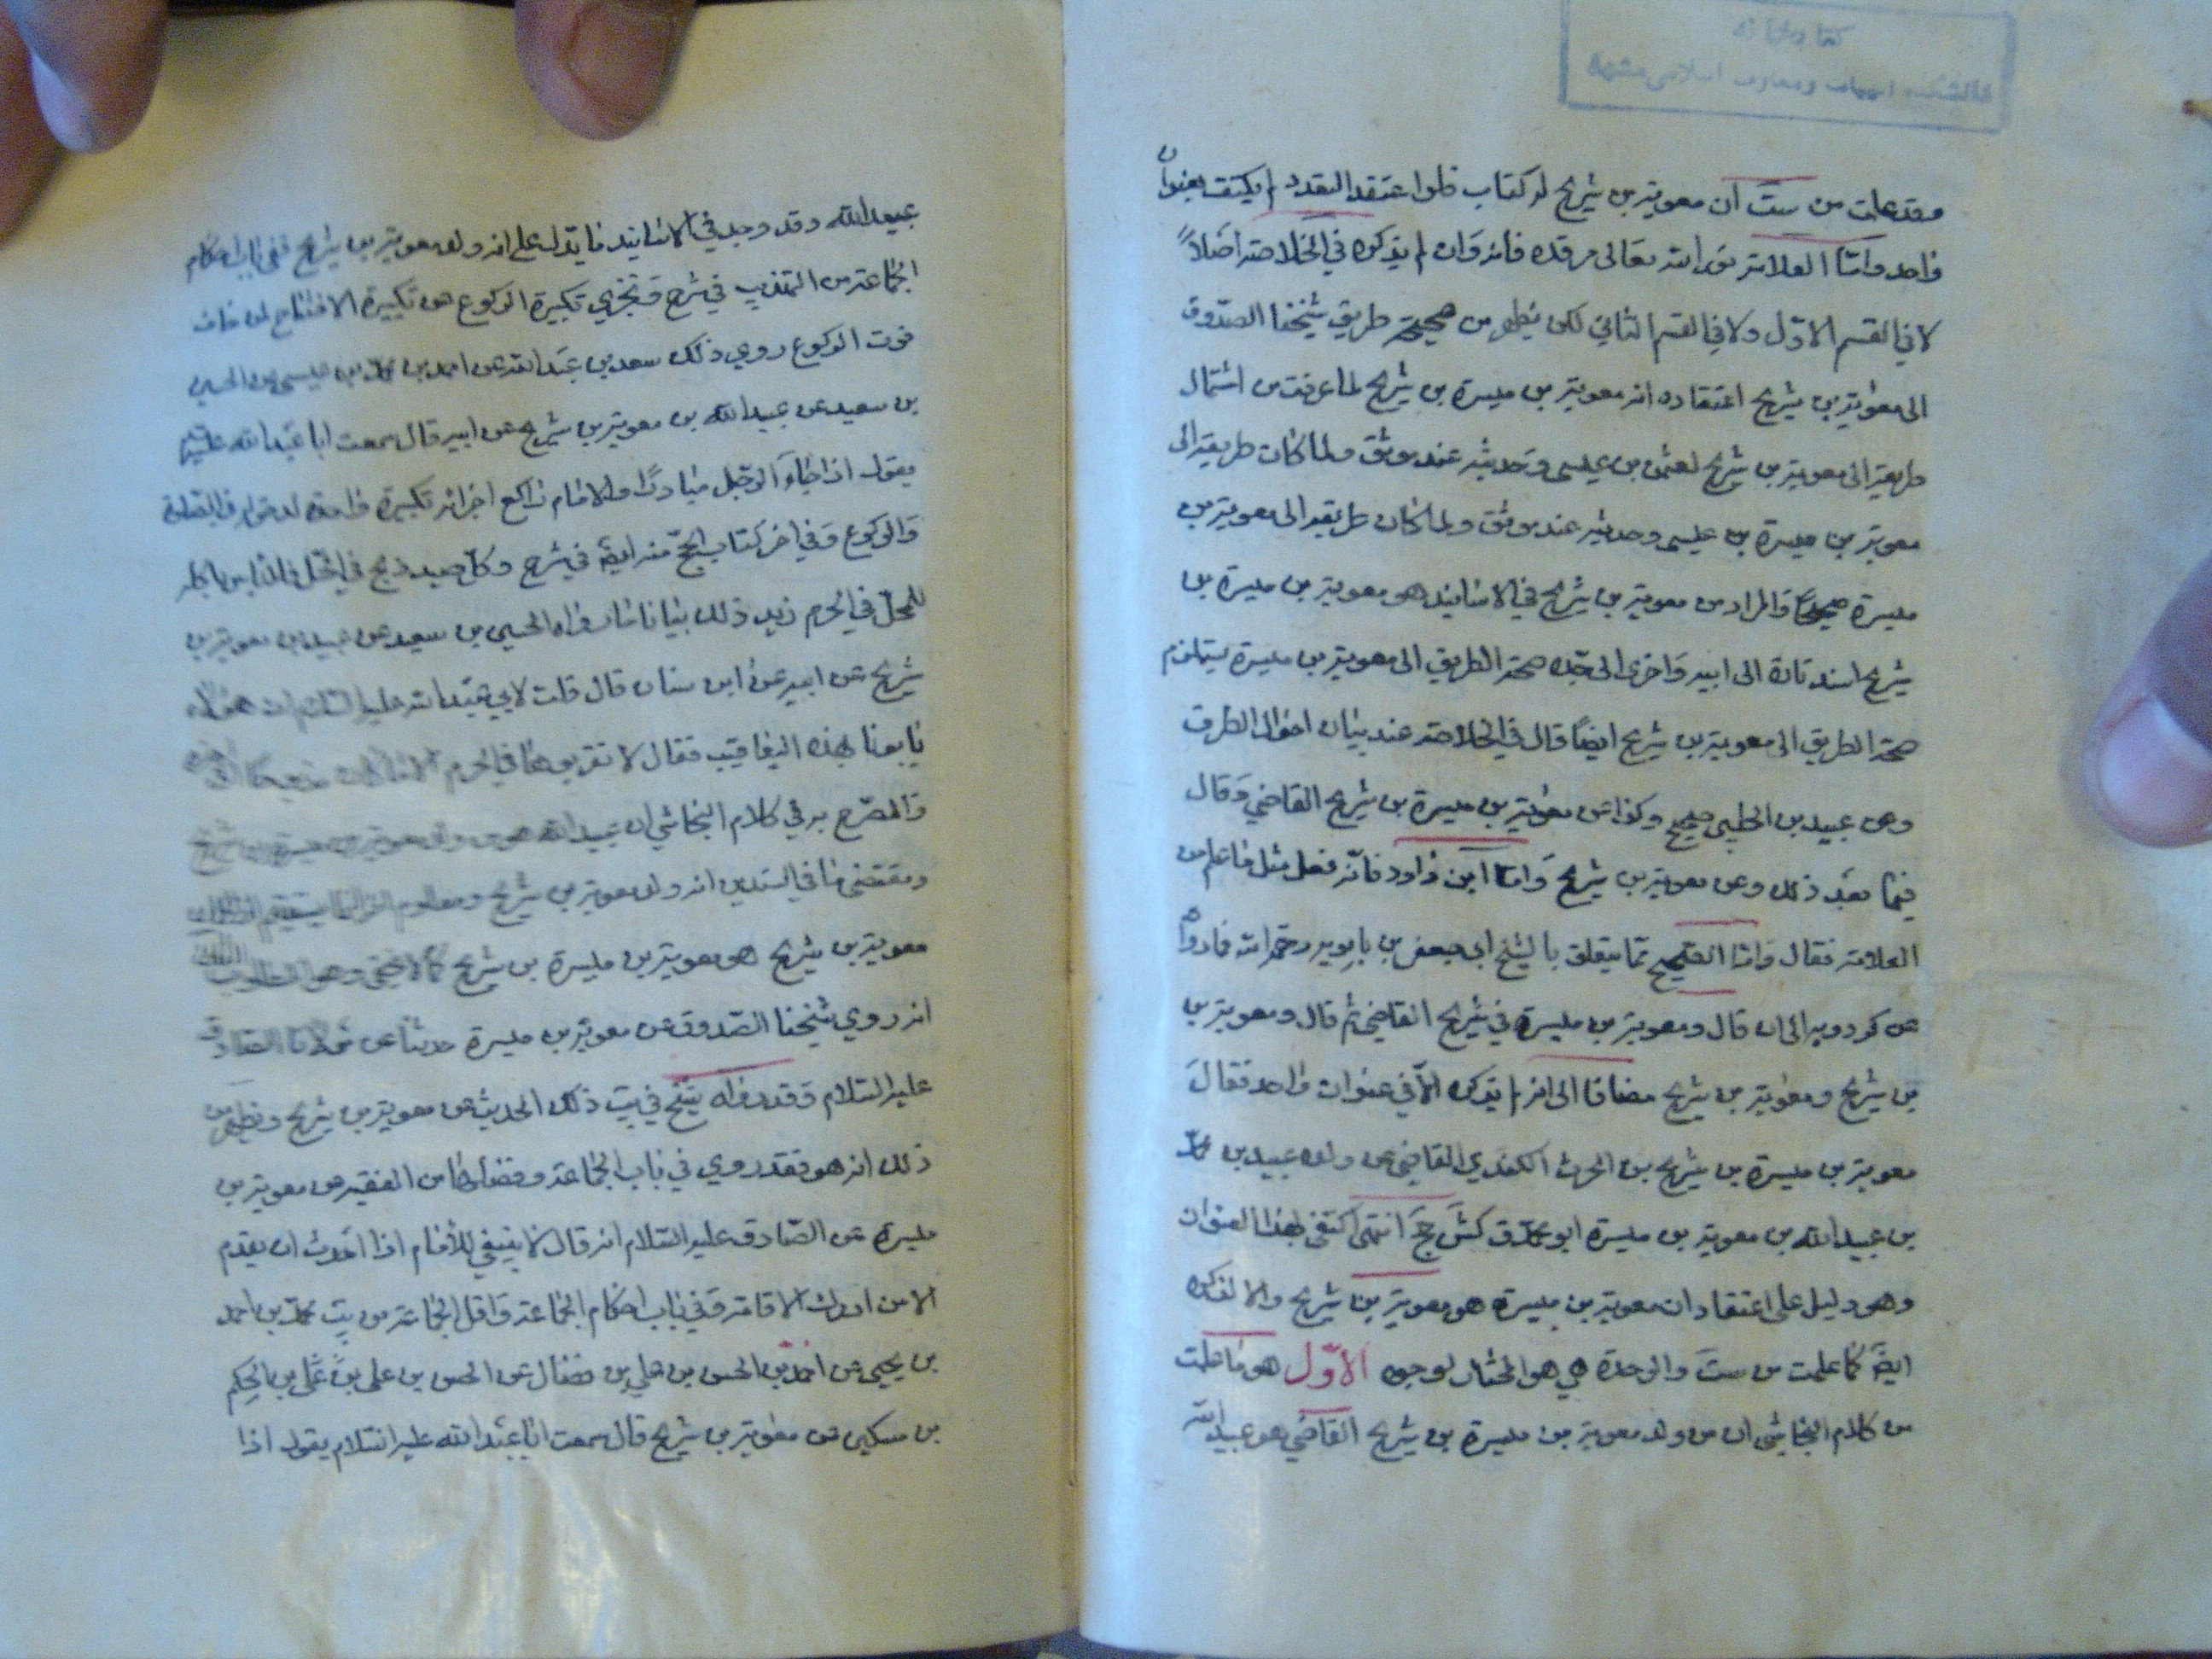 كتابخانه
دانشكده الهيات ومعارف اسلامى مشهد
وقد علمت من ست ان معوية بن شريح له كتاب فلو اعتقد التعدد لم يكتف بعنوان
واحد واما العلامة نور الله تعالى مرقده فانه وان لم يذكره في الخلاصة اصلاً
لا في القسم الاوّل ولا في القسم الثاني لكن يظهر من صحيحة طريق شيخنا الصدوق
الى معوية بن شريح اعتقاده انه معوية بن ميسرة بن شريح لما عرفت من اشتمال
طريقه الى معوية بن شريح لعثمن بن عيسى وحديثه عنده موثق ولما كانت طريقه الى
معوية بن ميسرة بن عيسى وحديثه عنده موثق ولما كان طريقه الى معوية بن
ميسرة صحيحًا والمراد من معوية بن شريح في الاسانيد هو معوية بن ميسرة بن
شريح اسند تارة الى ابيه واخرى الى جدّه صحة الطريق الى معوية بن ميسرة يستلزم
صحة الطريق الى معوية بن شريح ايضًا قال في الخلاصة عند بيان احوال الطرق
وعن عبيد بن الحلبي صحيح وكذا عن معوية بن ميسرة بن شريح القاضي وقال
فيما بعد ذلك وعن معوية بن شريح واما ابن داود فانّه فعل مثل ما علم من
العلامة فقال واما الصحيح مما يتعلق بالشيخ ابى جعفر بن بابويه رحمه الله فما رواه
عن كردويه الى ان قال ومعوية بن ميسرة بن شريح القاضي ثم قال ومعوية بن
بن شريح ومعوية بن شريح مضافا الى انه لم يذكره الّا في عنوان واحد فقال
معوية بن ميسرة بن شريح بن الحرث الكندي القاضي عن ولده عبيد بن محمّد
بن عبيد الله بن معوية بن ميسرة ابو محمّد ق كش جخ انتهى اكتفى بهذا العنوان
وهو دليل على اعتقاد ان معوية بن ميسرة هو معوية بن شريح والا لذكره
ايضًا كما علمت من ست والوحدة هي هو المختار لوجوه الاوّل هو ما علمت
من كلام النجاشي ان من ولد معوية بن ميسرة بن شريح القاضي هو عبيد الله
عبيد الله وقد وجد في الاسانيد ما يدل على انه ولد معوية بن شريح ففى باب احكام
الجماعة من التهذيب في شرح وتجزي تكبيرة الركوع عن تكبيرة الافتتاح لمن خاف
فوت الركوع روي ذلك سعد بن عبد الله عن احمد بن محمّد بن عيسى عن الحسين
بن سعيد عن عبيد الله بن معوية بن شريح عن ابيه قال سمعت ابا عبد الله عليه السلم
يقول اذا جاء الرّجل مبادرًا والامام راكع اجزأته تكبيرة واحدة لدخوله في الصلوة
والركوع وفي اخر كتاب الحجّ منه ايضًا في شرح وكلّ صيد ذبح في الحلّ فلا باس باكله
للمحلّ في الحرم زيد ذلك بيانا ما رواه الحسين بن سعيد عن عبيد بن معوية بن
شريح عن ابيه عن ابن سنان قال قلت لابي عبد الله عليه السلام ان هؤلاء
ياتونا بهذه اليعاقيب فقال لا تقربوها في الحرم الا ما كان مذبوحا
والمصرّح به في كلام النجاشي ان عبيد الله هو ولد معوية بن ميسرة بن شريح
ومقتضى ما في السندين انه ولد معوية بن شريح ومعلوم
معوية بن شريح هو معوية بن ميسرة بن شريح كما لا يخفى وهو المطلوب
انه روي شيخنا الصدوق عن معوية بن ميسرة حديثًا عن مولانا الصادق
عليه السلام وقد رواه شيخ في يب ذلك الحديث عن معوية بن شريح ويظهر من
ذلك انه هو فقد روي في باب الجماعة وفضلها من الفقيه عن معوية بن
ميسرة عن الصّادق عليه السلام انه قال لا ينبغي للأمام اذا احدث ان يقدم
الا من ادرك الاقامة وفي باب احكام الجماعة واقل الجماعة من يب محمّد بن احمد
بن يحيى عن احمد بن الحسن بن علي بن فضال عن الحسن بن على بن على بن الحكم
بن مسكين عن معوية بن شريح قال سمعت ابا عبد الله عليه السلام يقول اذا